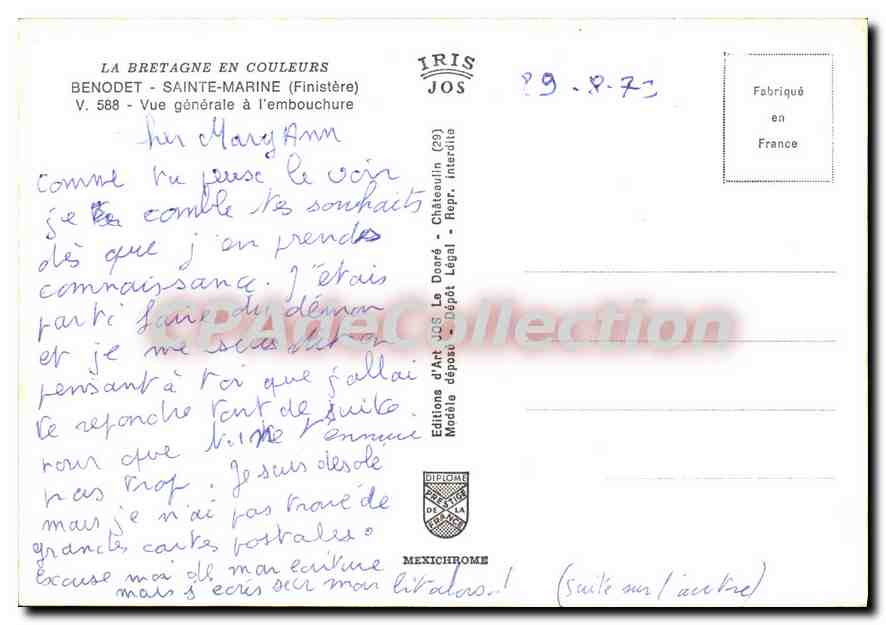 LA BRETAGNE EN COULEURS
BENODET - SAINTE-MARINE (Finistère)
V. 588 - Vue générale à l'embouchure
IRIS
JOS
29-8-73
Fabriqué
en
France
her MaryAnn
comme tu peuse le voir
je comble tes souhaits
dès que j'en prends
connaissance. J'étais
parti faire du démon
et je me suis dit en
pensant à toi que j'allai
te repondre tout de suite.
Pour que ne t'ennuie
pas trop. Je suis désolé
mais je n'ai pas trouvé de
grandes cartes postales.
Excuse moi de mon ecriture
mais j'ecris sur mon lit alors..!
(suite sur l'autre)
Editions d'Art JOS Le Doaré - Châteaulin (29)
Modèle déposé - Dépôt Légal - Repr. interdite
DIPLOME
PRESTIGE
DE LA
FRANCE
MEXICHROME
CPAdeCollection